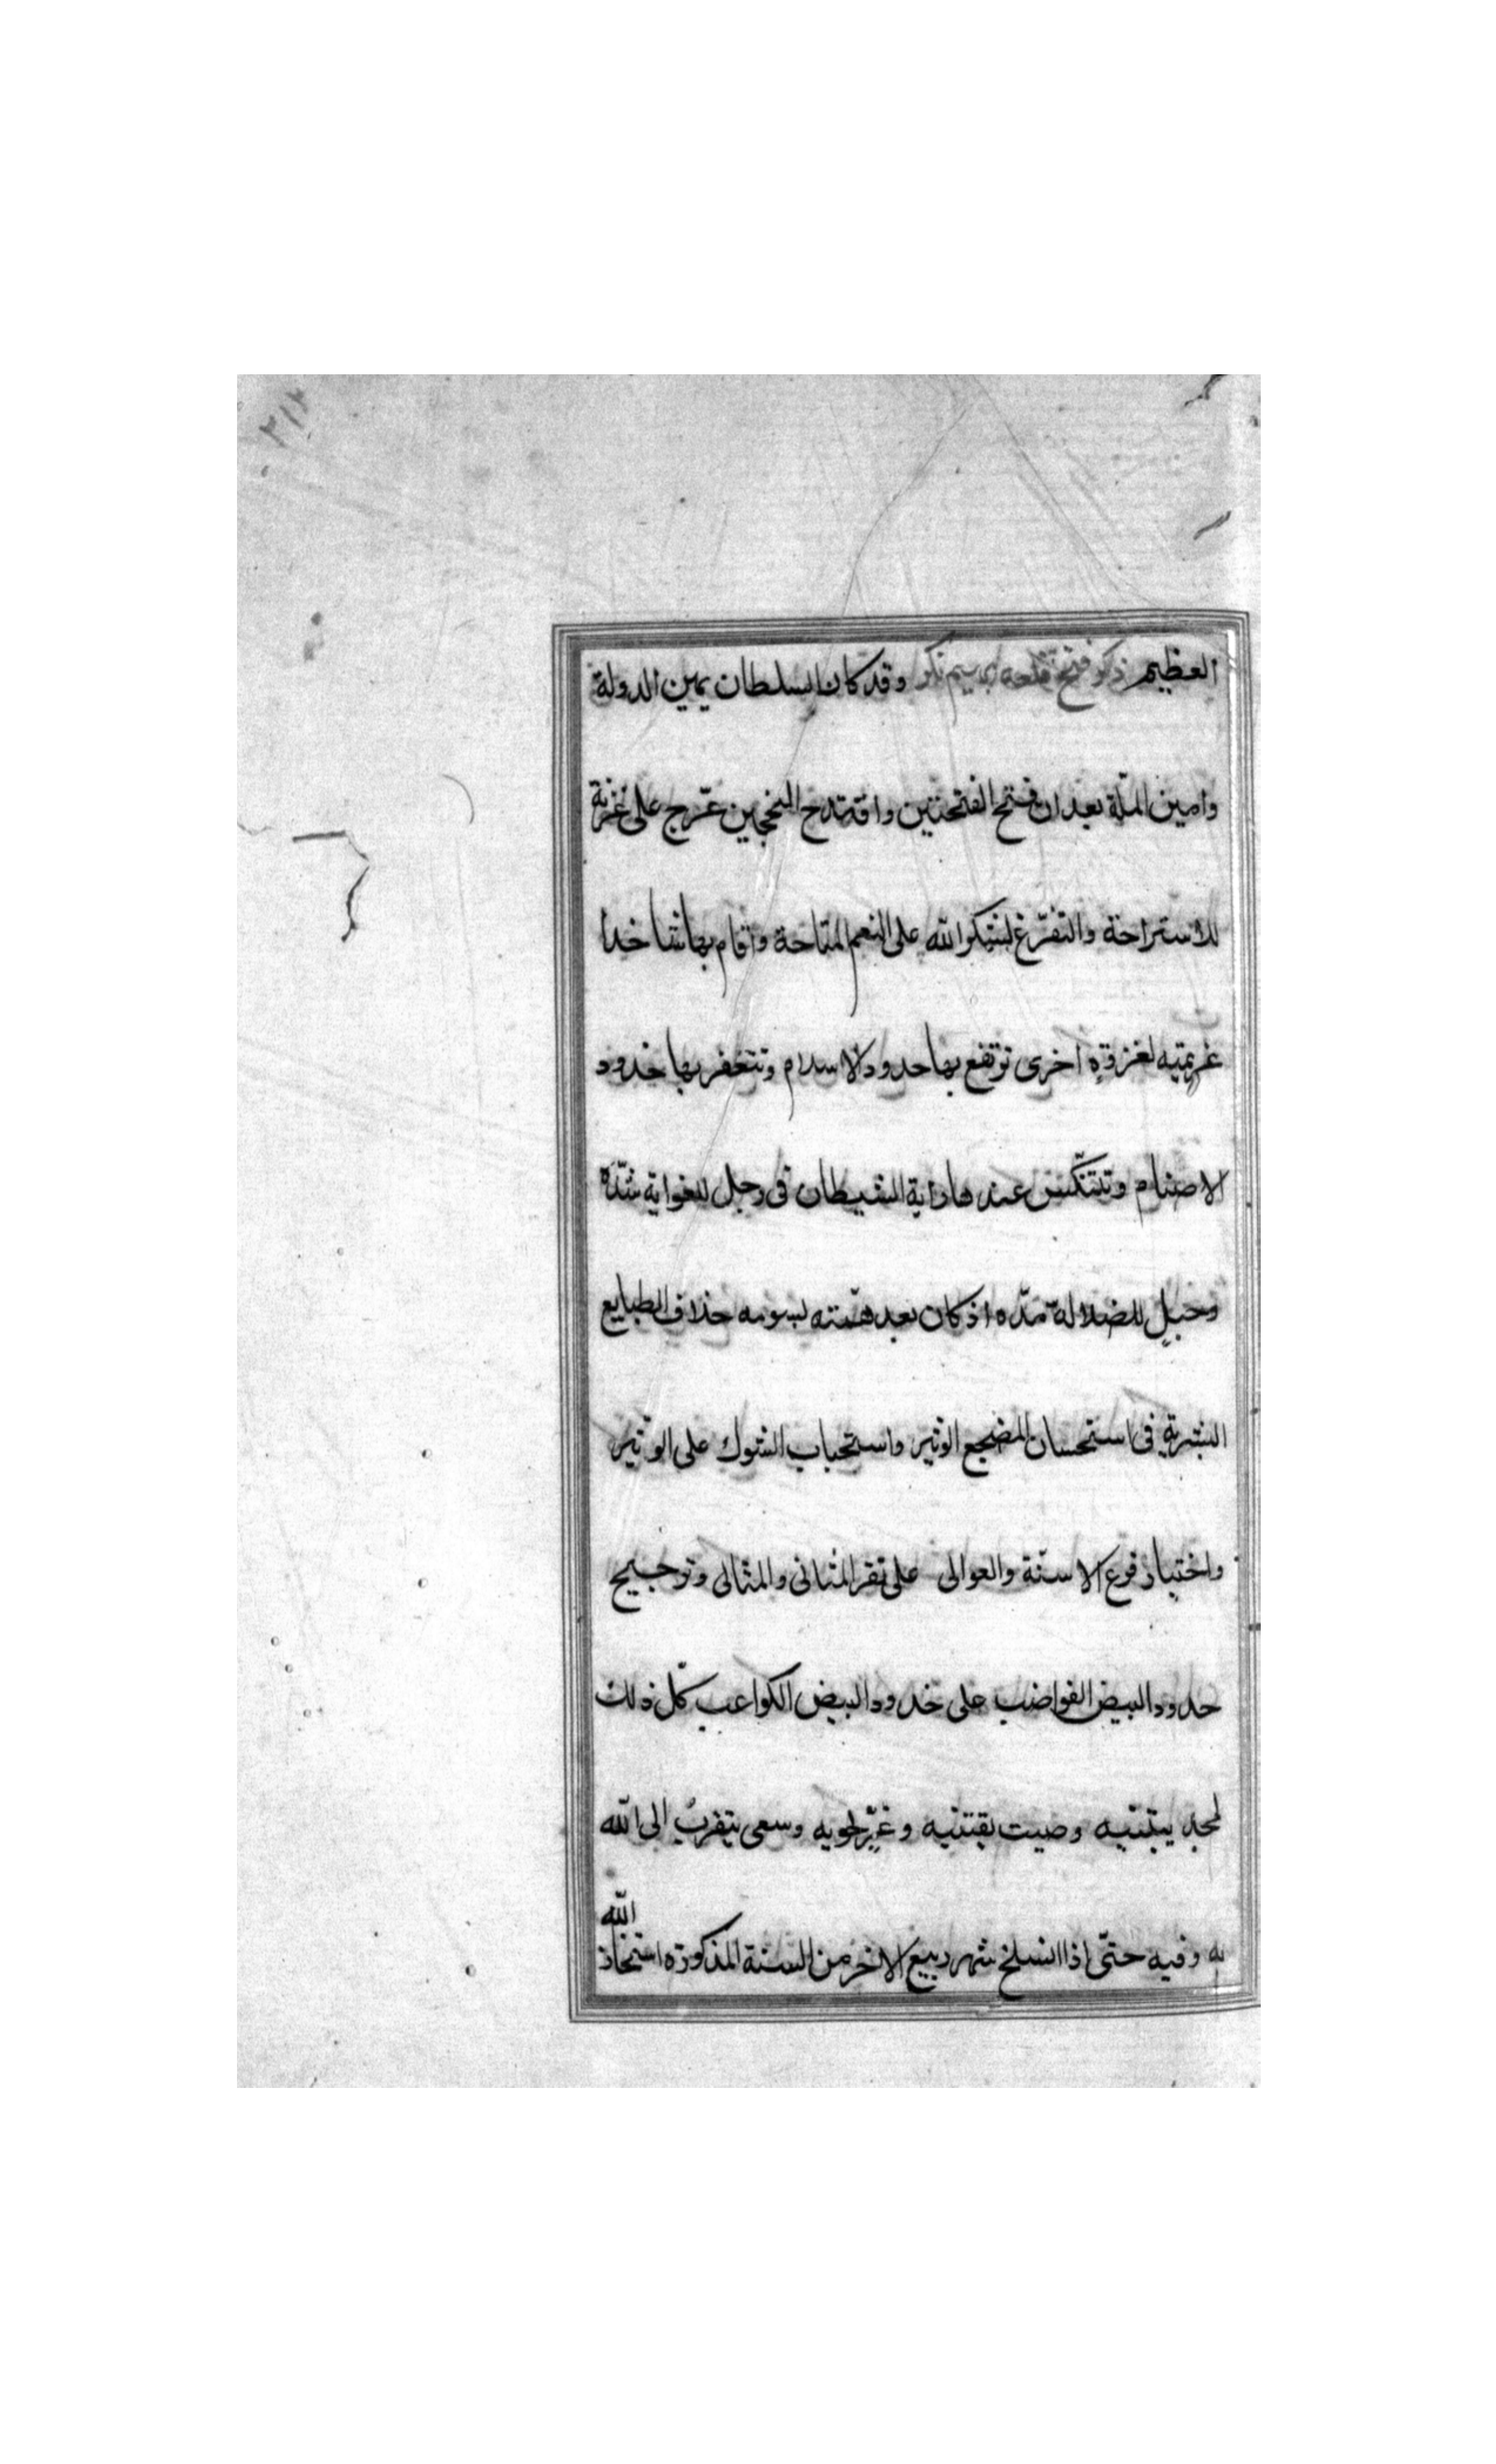 ٣١٣
العظيم ذكر فتح قلعة بهيم نكر وقد كان السلطان يمين الدولة
وامين الملّة بعد ان فتح الفتحتين واقتدح النجحين عرّج على غزنة
للاستراحة والتفرّغ لشكر الله على النعم المتاحة واقام بها شاخذا
عزيمته لغزوةٍ اخرى ترتفع بها حدود الاسلام وتتعفر بها خدود
الاصنام وتتنكّس عندها راية الشيطان فى رجل للغواية شدّه
وحبلٍ للضلالة مدّه اذ كان بعد همّته يسومه خلاف الطبايع
البشرية فى استحسان المضجع الوثير واستحباب الشوك على الوثير
واختيار قرع الاسنّة والعوالى على نقر المثانى والمثالى وترجيح
حدود البيض القواضب على خدود البيض الكواعب كلّ ذلك
لمجد يبتنيه وصيت يقتنيه وعزٍّ يحويه وسعى يتقرب الى الله
به وفيه حتّى اذا انسلخ شهر ربيع الاخر من السنة المذكورة استخار
الله